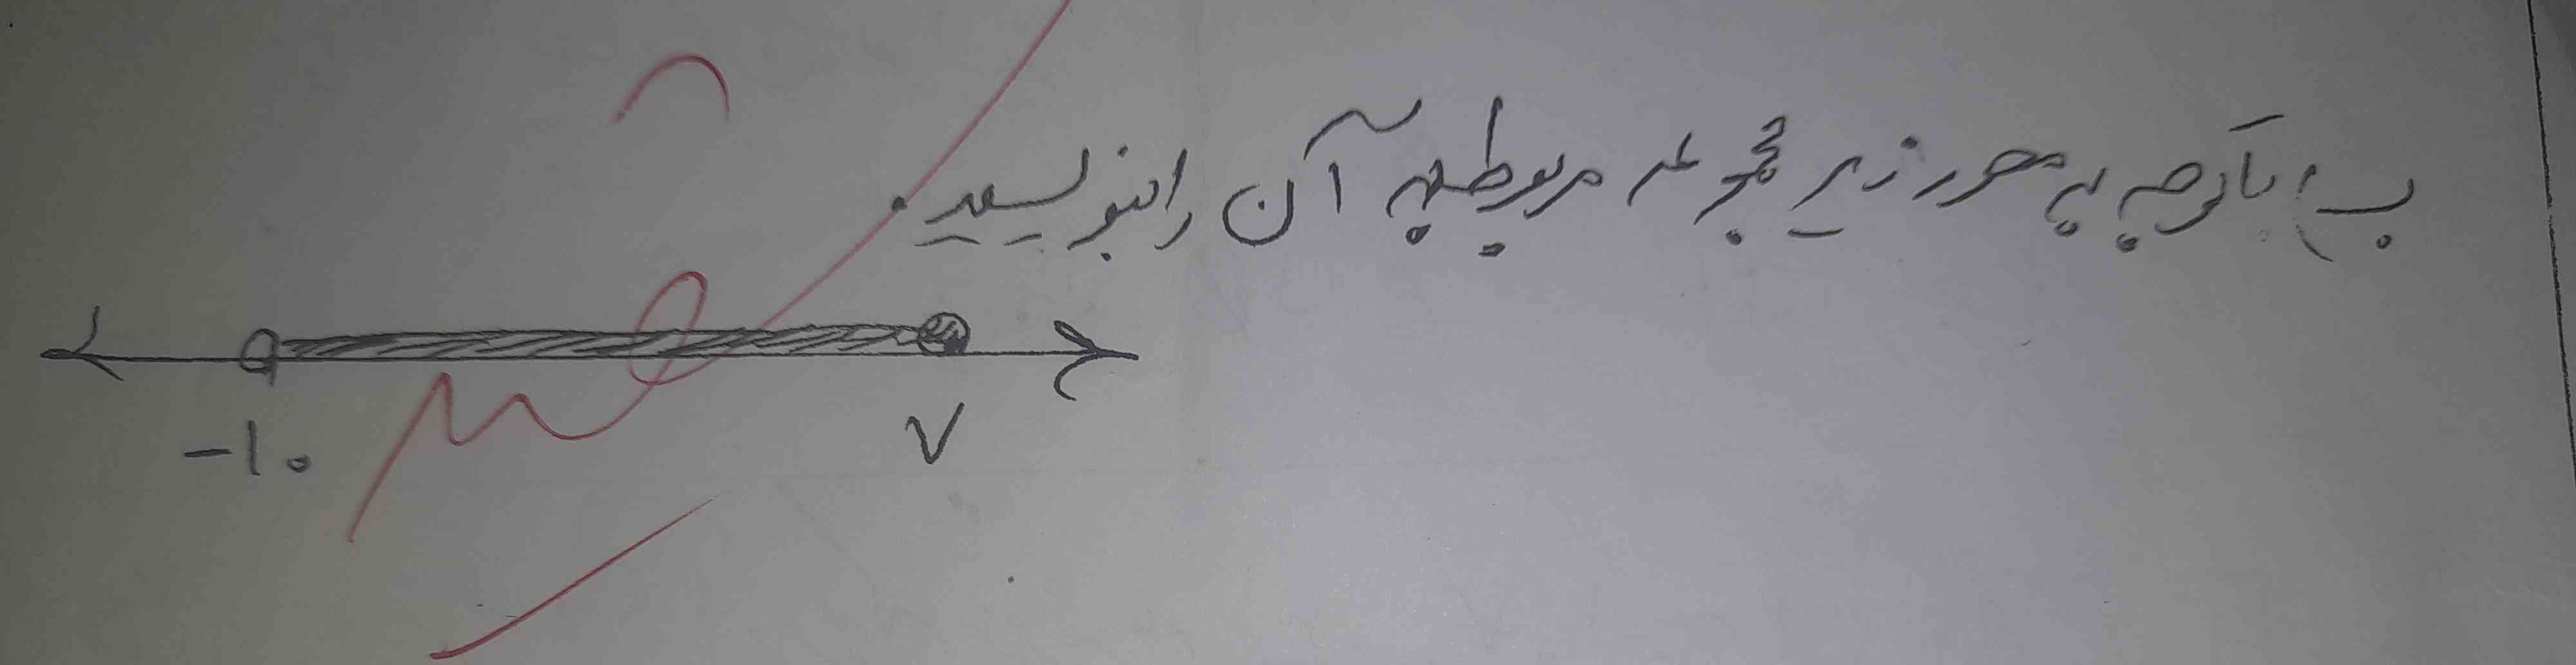 ب) با توجه به محور زیر مجموعه مربوط به آن را بنویسید.
-۱۰ ۷